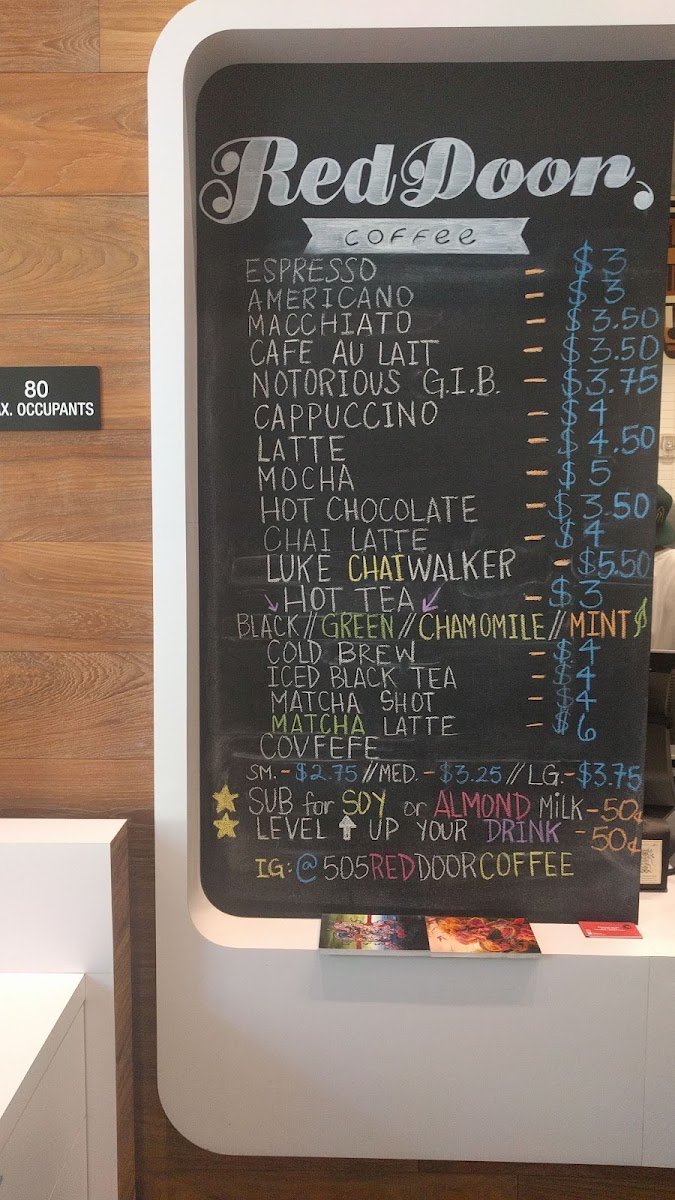 80
AX. OCCUPANTS
Red Door
COFFEE
ESPRESSO - $3
AMERICANO - $3
MACCHIATO - $3.50
CAFE AU LAIT - $3.50
NOTORIOUS G.I.B. - $3.75
CAPPUCCINO - $4
LATTE - $4.50
MOCHA - $5
HOT CHOCOLATE - $3.50
CHAI LATTE - $4
LUKE CHAIWALKER - $5.50
↘HOT TEA↙ - $3
BLACK//GREEN//CHAMOMILE//MINT
COLD BREW - $4
ICED BLACK TEA - $4
MATCHA SHOT - $4
MATCHA LATTE - $6
COVFEFE
SM.-$2.75//MED.-$3.25//LG.-$3.75
★ SUB for SOY or ALMOND MiLK-50¢
★ LEVEL ↑ UP YOUR DRINK -50¢
IG:@505REDDOORCOFFEE